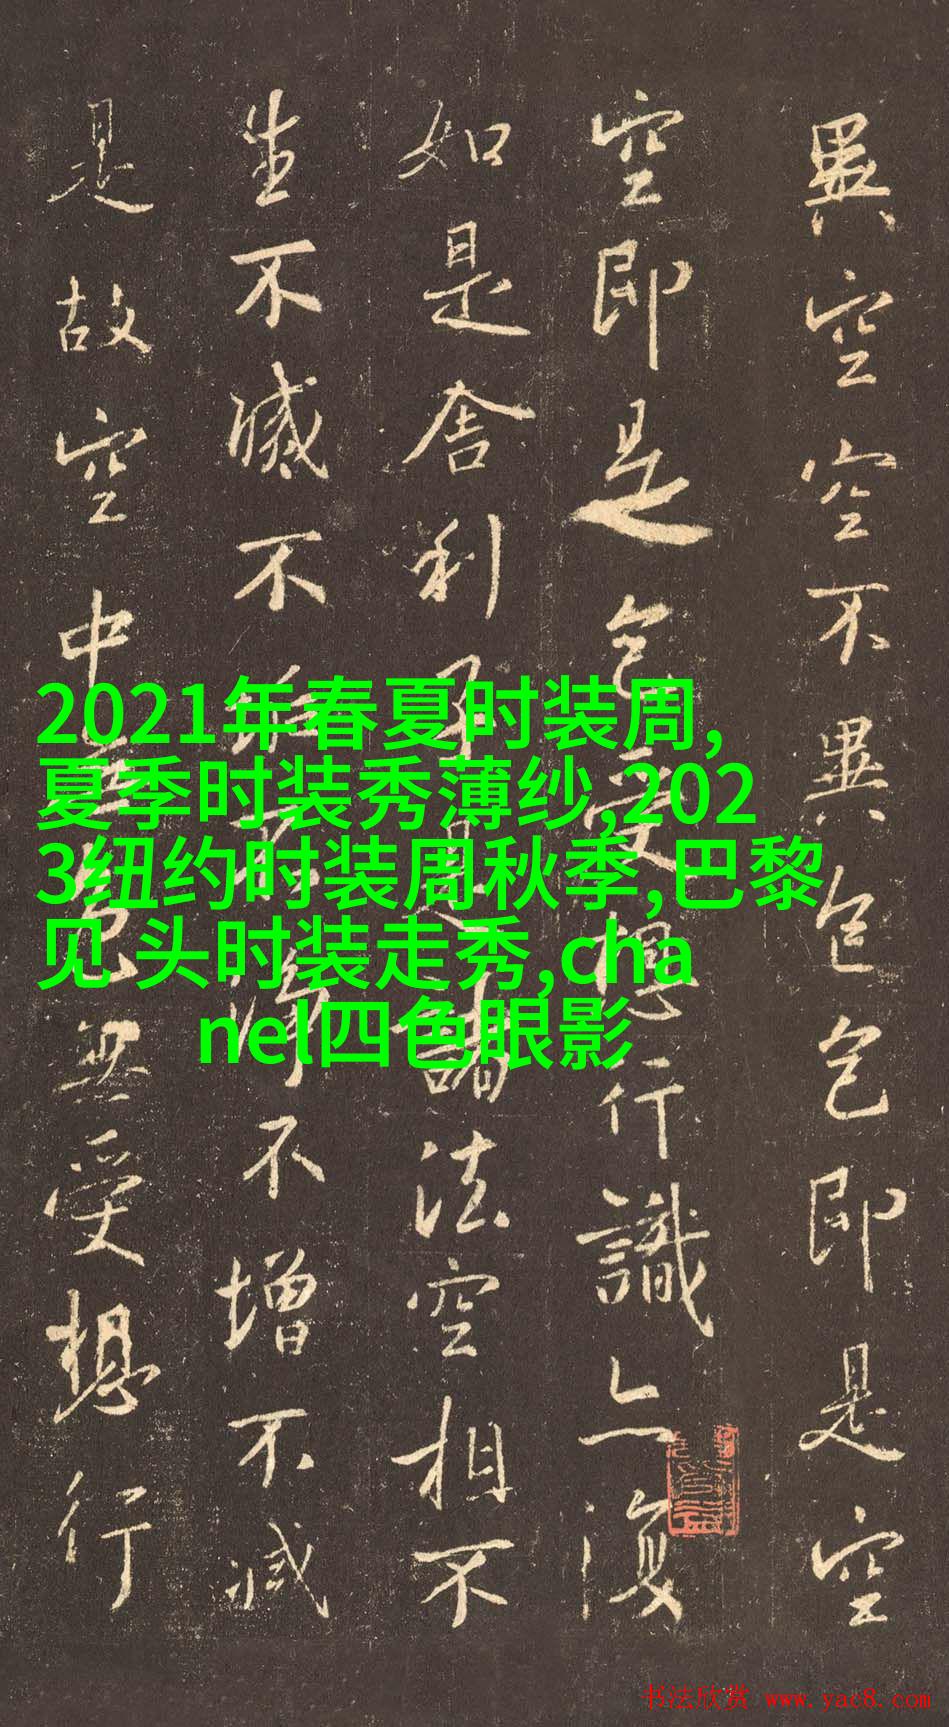 異空空不異色色即是空
空即是色受想行識亦復
如是舍利子是諸法空相不
生不滅不垢不淨不增不減
是故空中無色無受想行
2021年春夏时装周,
夏季时装秀薄纱,202
3纽约时装周秋季,巴黎
见 头时装走秀,cha
nel四色眼影
书法欣赏 www.yac8.com